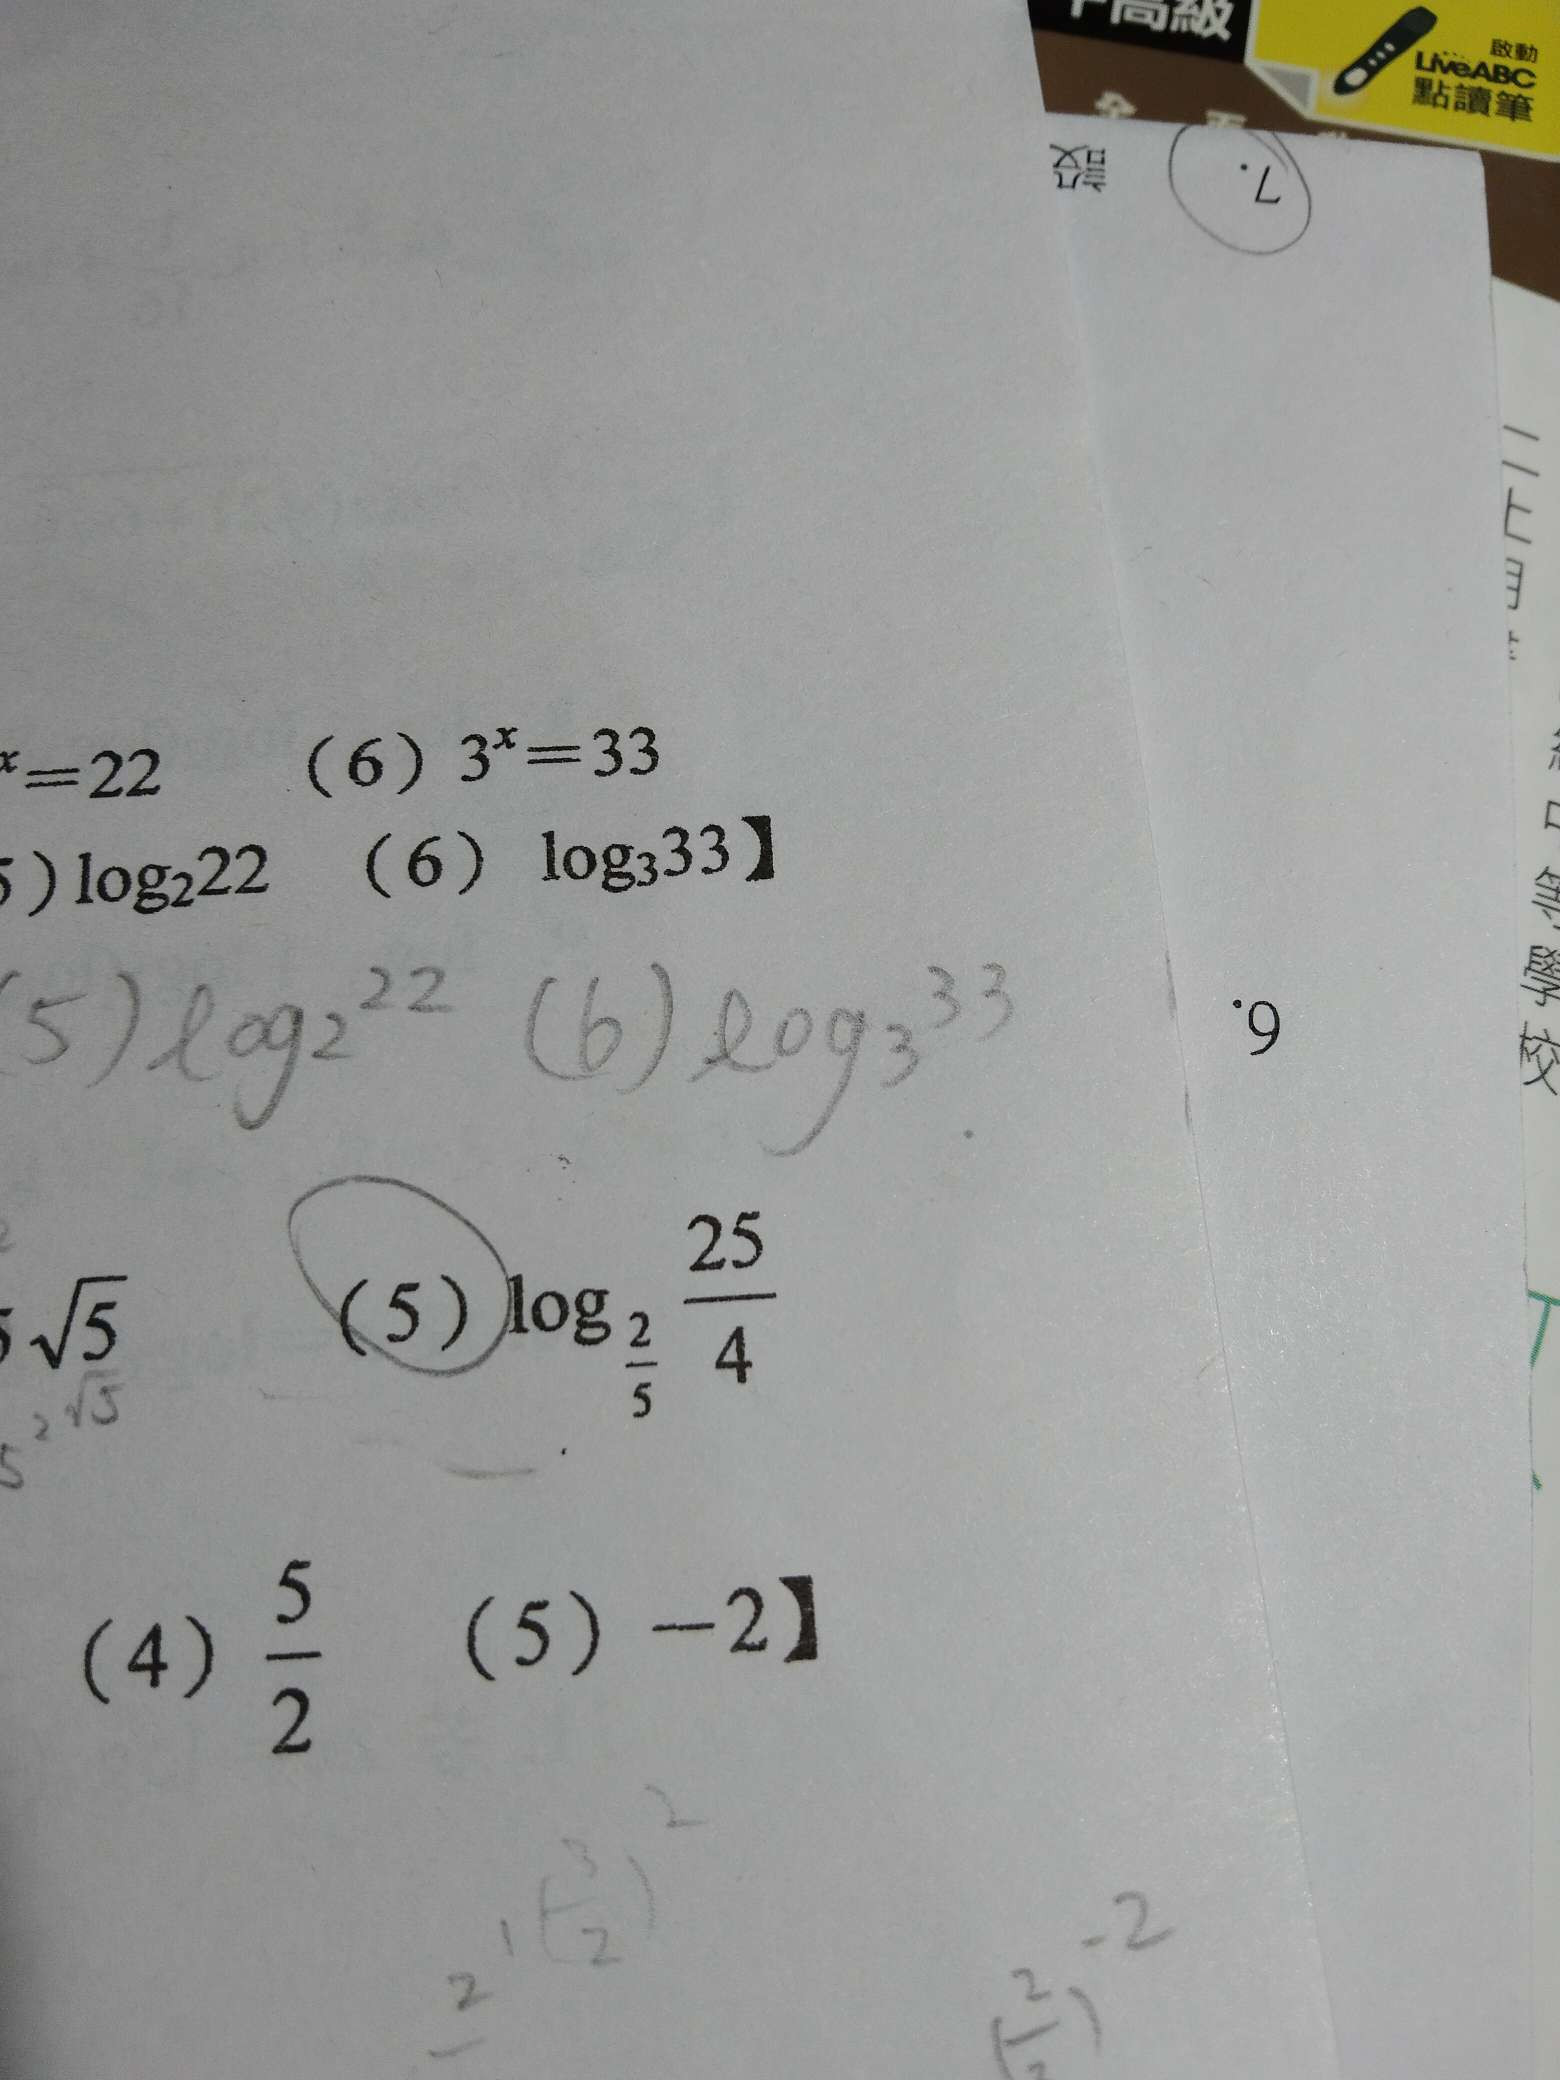 高級
啟動
LiveABC
點讀筆
設
7.
x=22 (6) 3^x=33
5) log₂22 (6) log₃33】
(5) log₂22 (6) log₃33
6.
√5 (5) log_{2/5} 25/4
5 2√5
(4) 5/2 (5) -2】
(3/2)²
2
-2